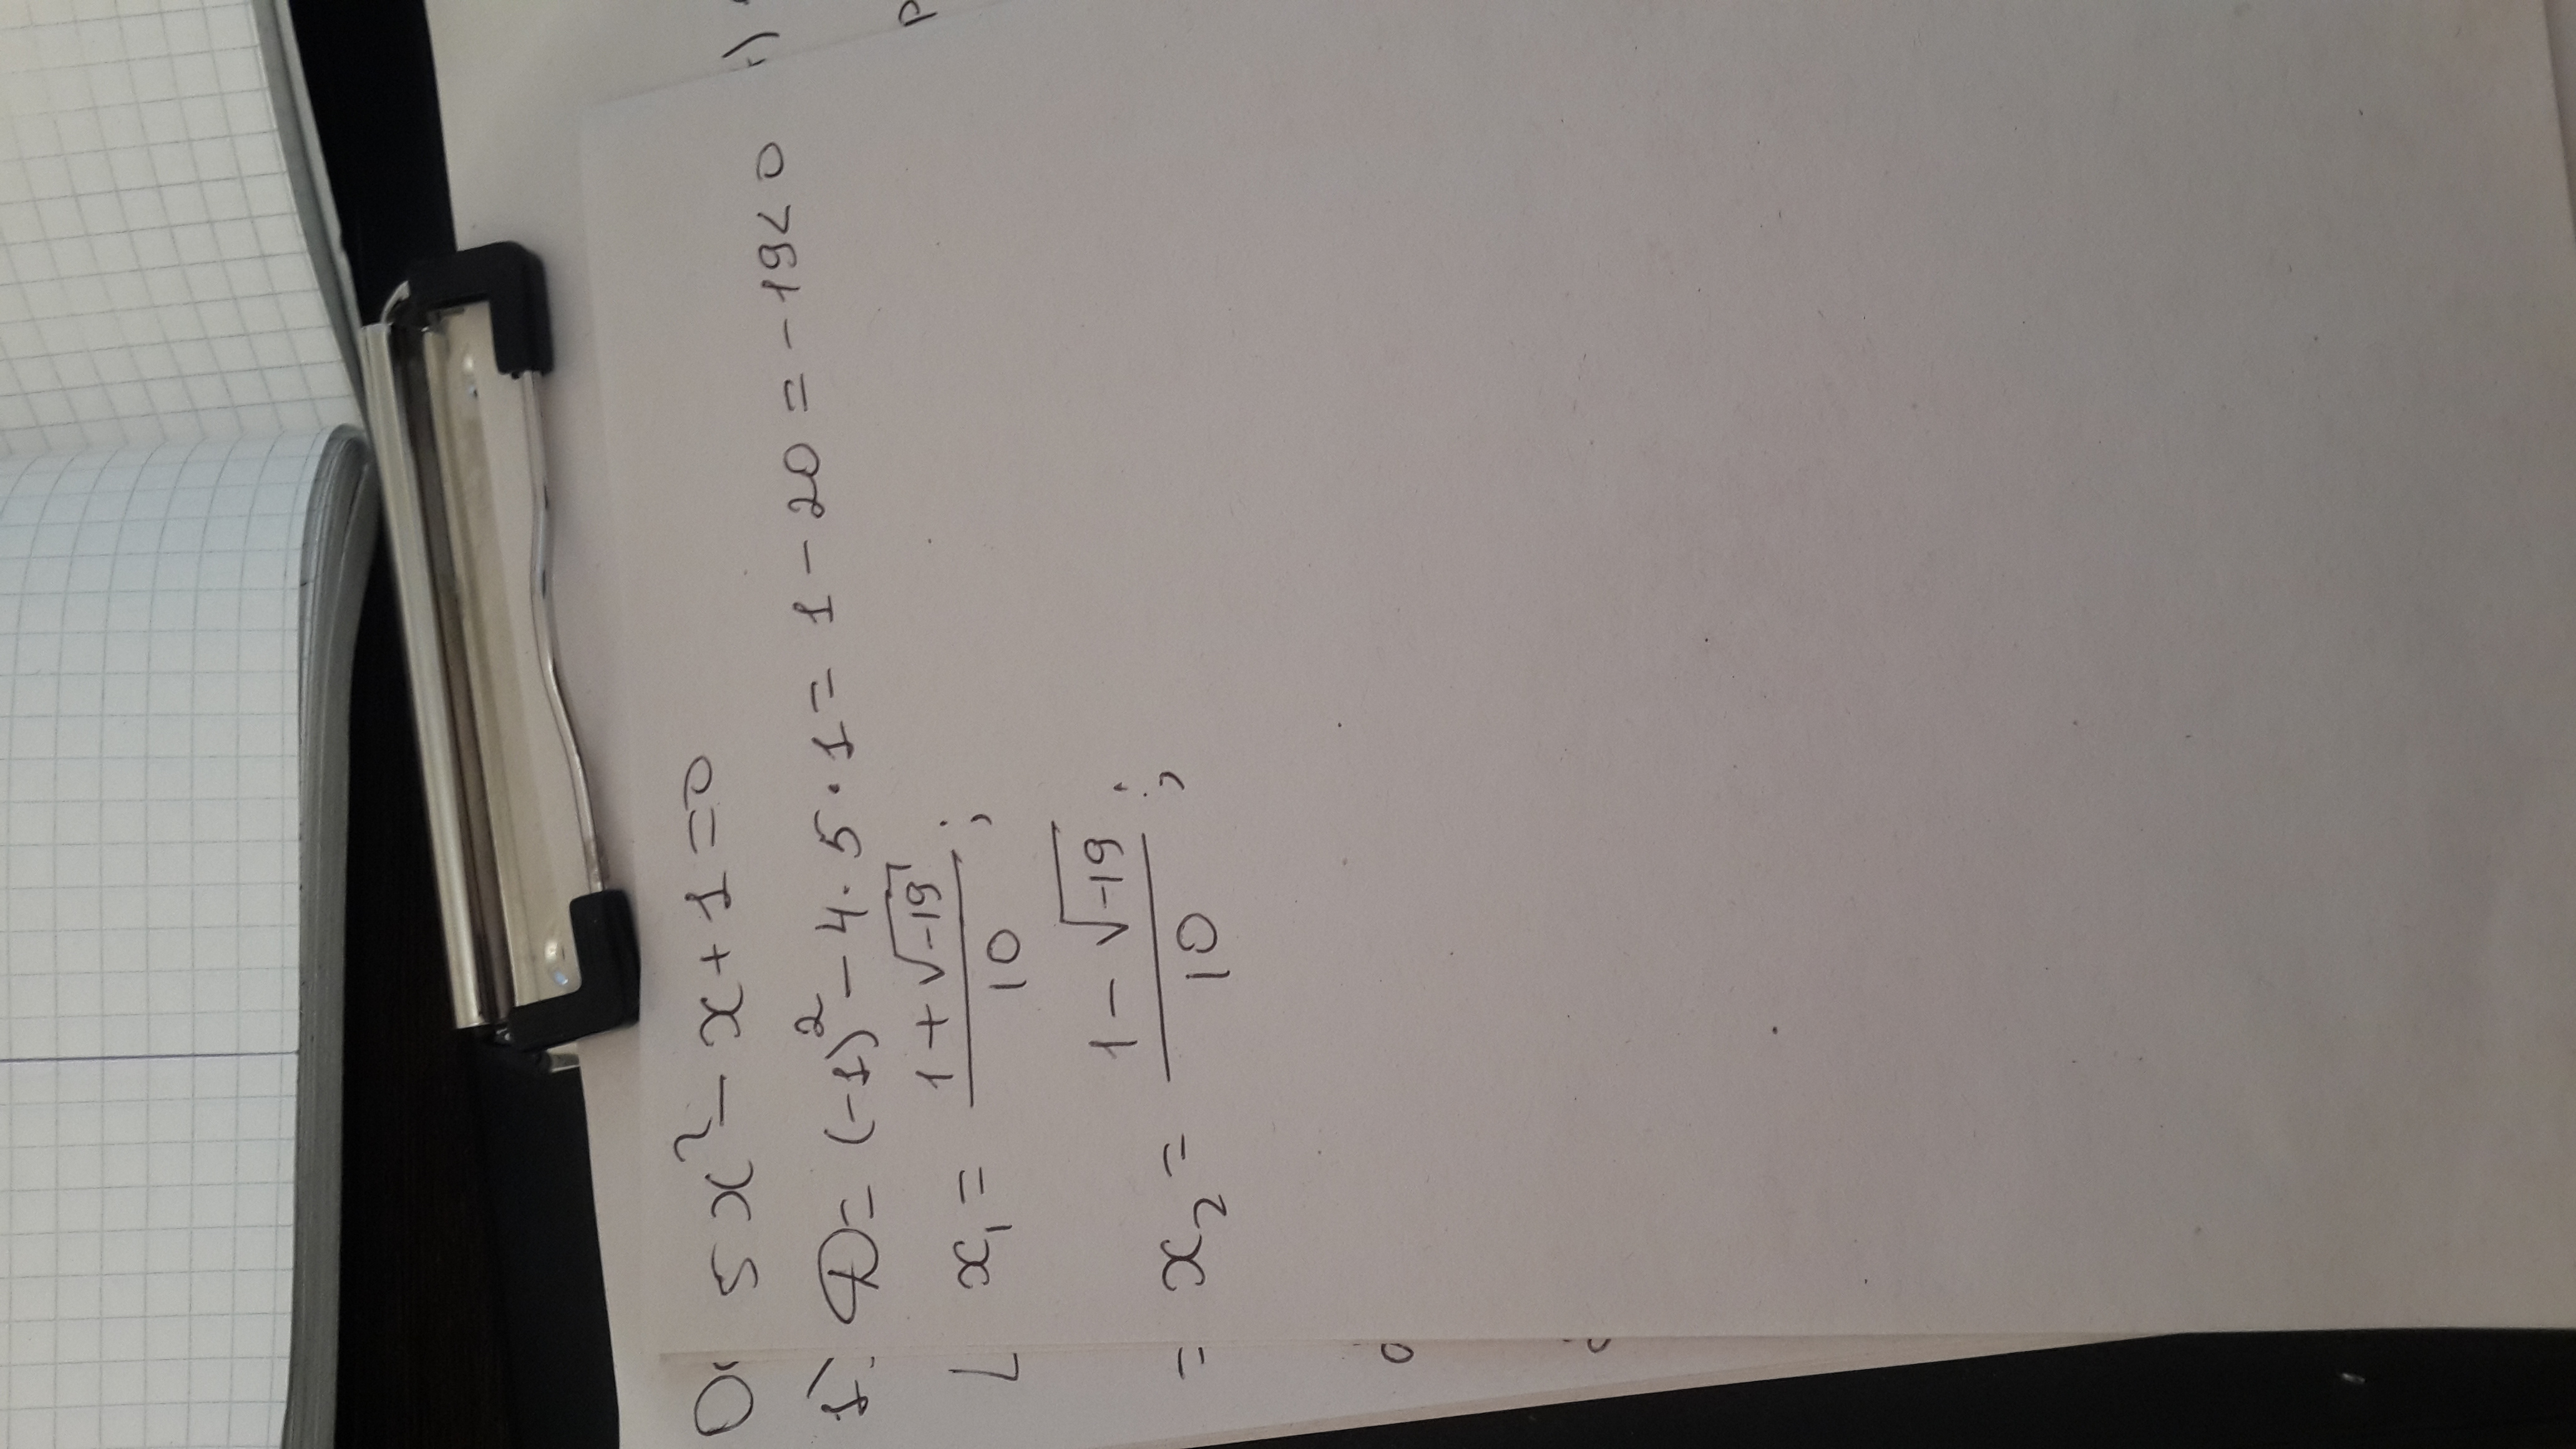 5x² - x + 1 = 0
D = (-1)² - 4 · 5 · 1 = 1 - 20 = -19 < 0
x₁ = (1 + √-19) / 10 ;
x₂ = (1 - √-19) / 10 ;